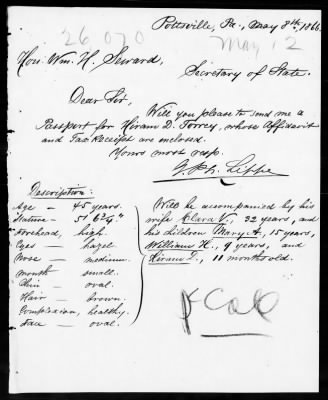 Pottsville, Pa., May 8th, 1866
26070
May 12
Hon. Wm. H. Seward,
Secretary of State.
Dear Sir,
Will you please to send me a
Passport for Hiram D. Torrey, whose Affidavit
and Tax Receipt are enclosed.
Yours most resp.
Description:
Age — 45 years.
Stature — 5' 6¾"
Forehead, high.
Eyes — hazel.
Nose — medium.
Mouth — small.
Chin — oval.
Hair — brown.
Complexion, healthy.
Face — oval.
Will be accompanied by his
wife Clara V., 32 years, and
his children Mary A., 15 years,
William H., 9 years, and
Hiram D., 11 months old.